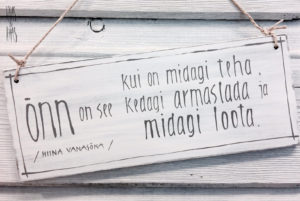 kui on midagi teha,
õnn on see kedagi armastada ja
midagi loota.
/ HIINA VANASÕNA /